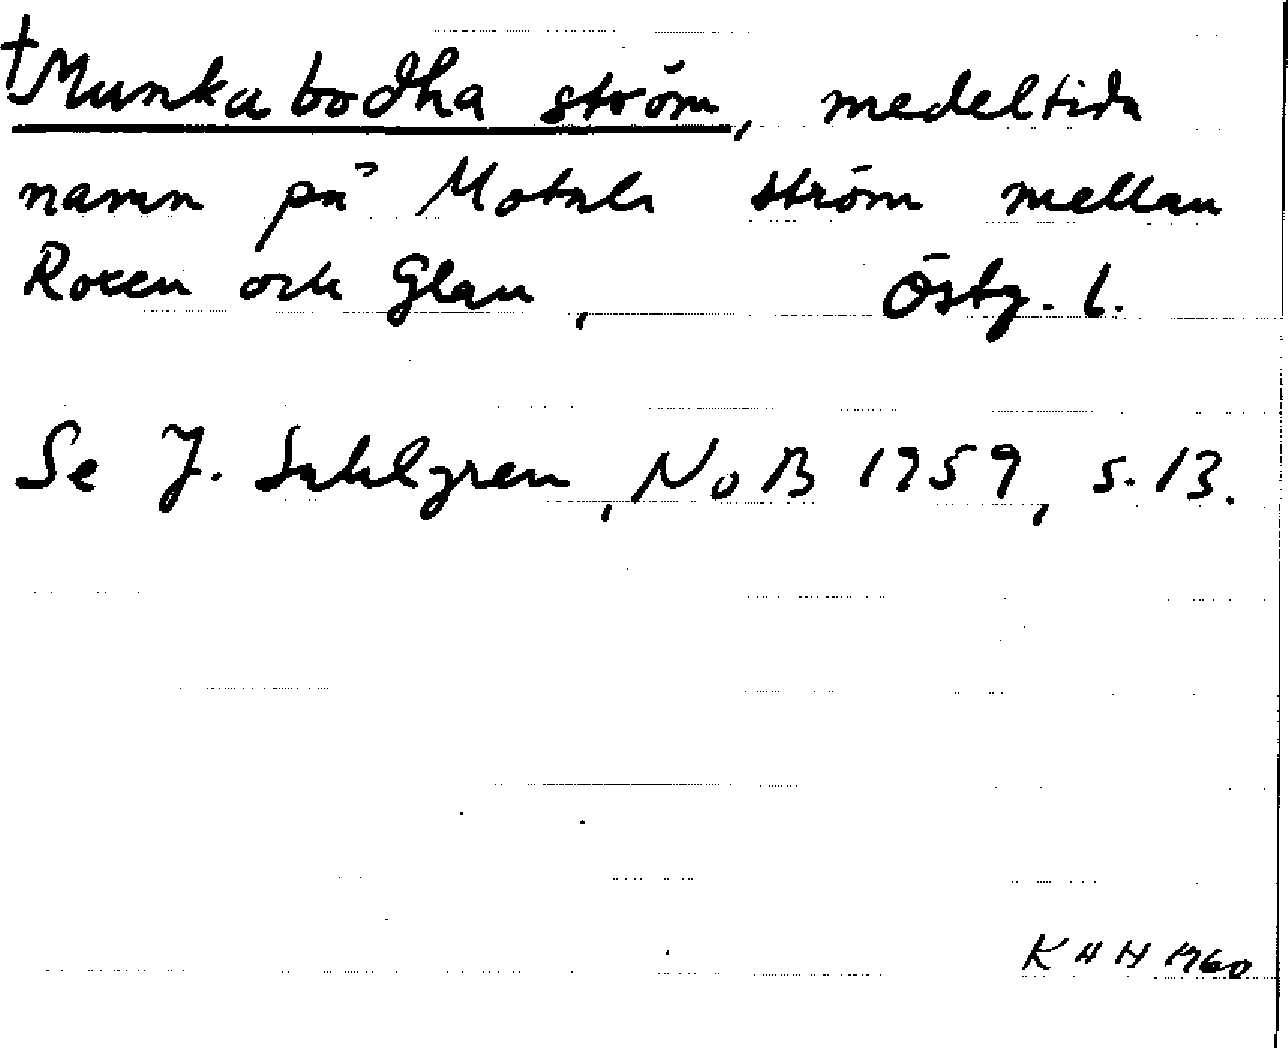 †Munkabodha ström, medeltida
namn på Motala ström mellan
Roxen och Glan, Östg. l.
Se J. Sahlgren, NoB 1959, s. 13.
KHH 1960